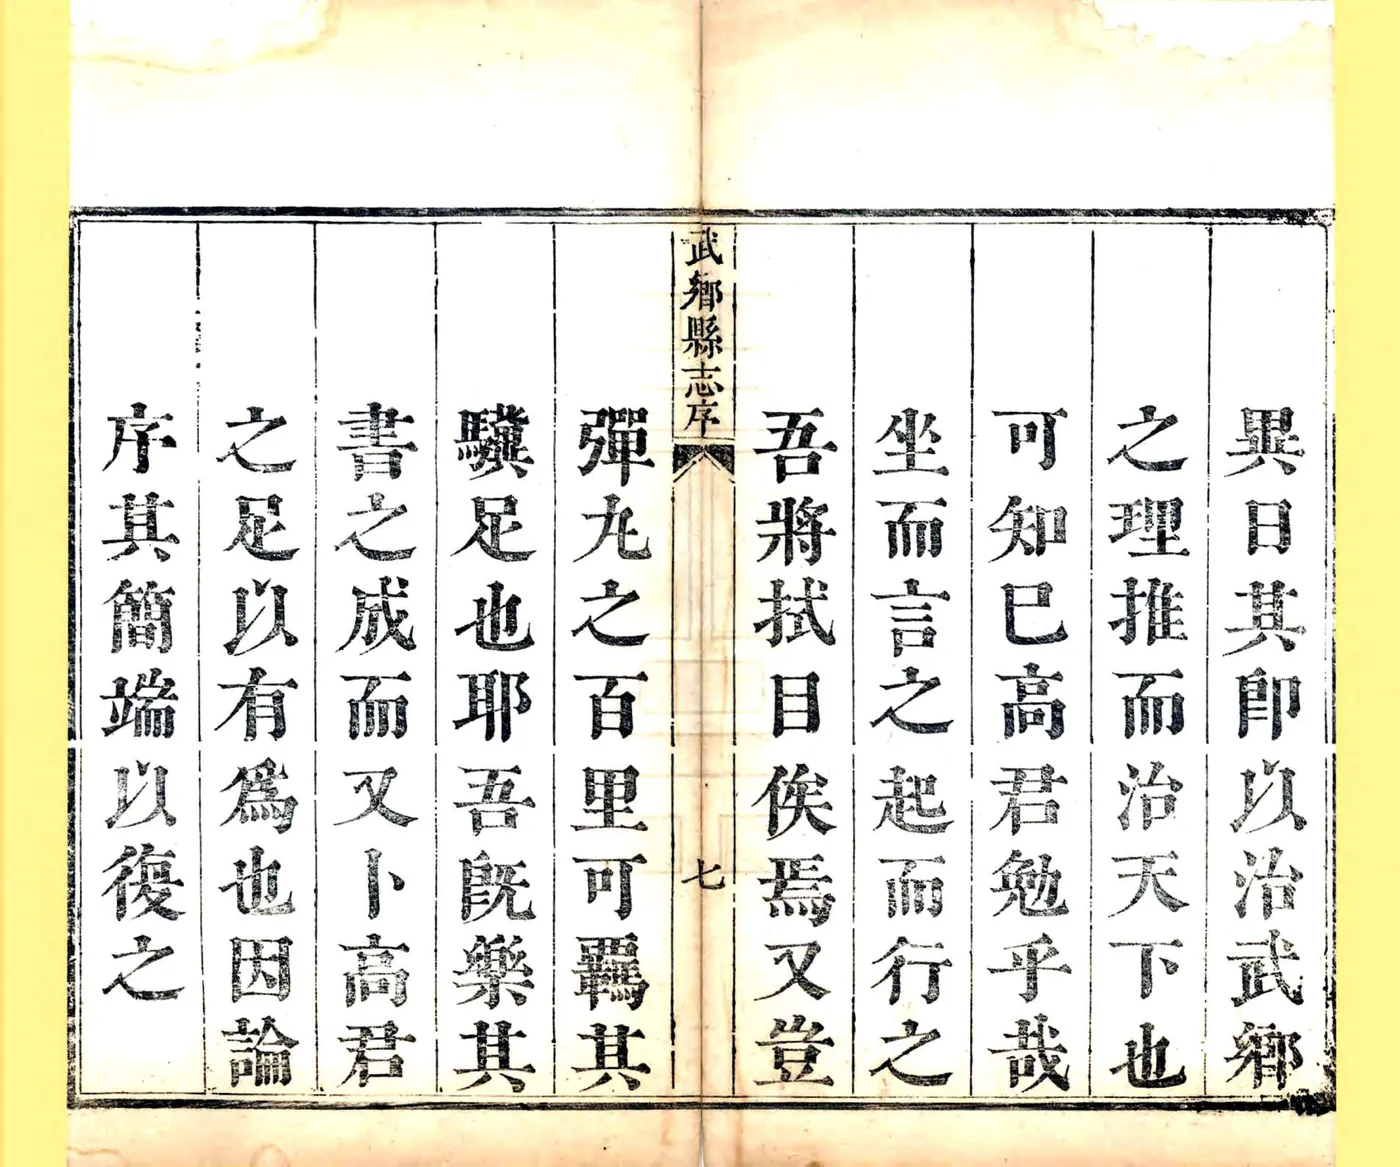 異日其卽以治武鄉
之理推而治天下也
可知已高君勉乎哉
坐而言之起而行之
吾將拭目俟焉又豈
武鄉縣志序
七
彈丸之百里可羈其
驥足也耶吾旣樂其
書之成而又卜高君
之足以有爲也因論
序其簡端以復之